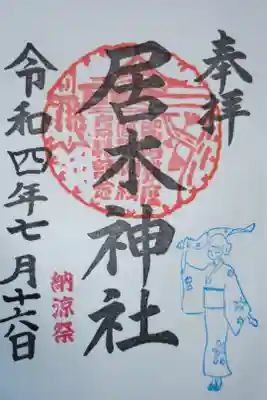 奉拝
居木神社
納涼祭
令和四年七月十六日